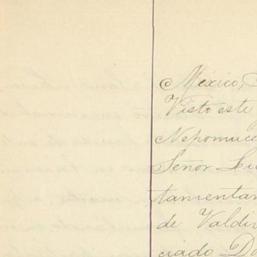 Mexico,
Visto este
Nepomuce
Señor Lu
tamentar
de Valdiv
ciado Do